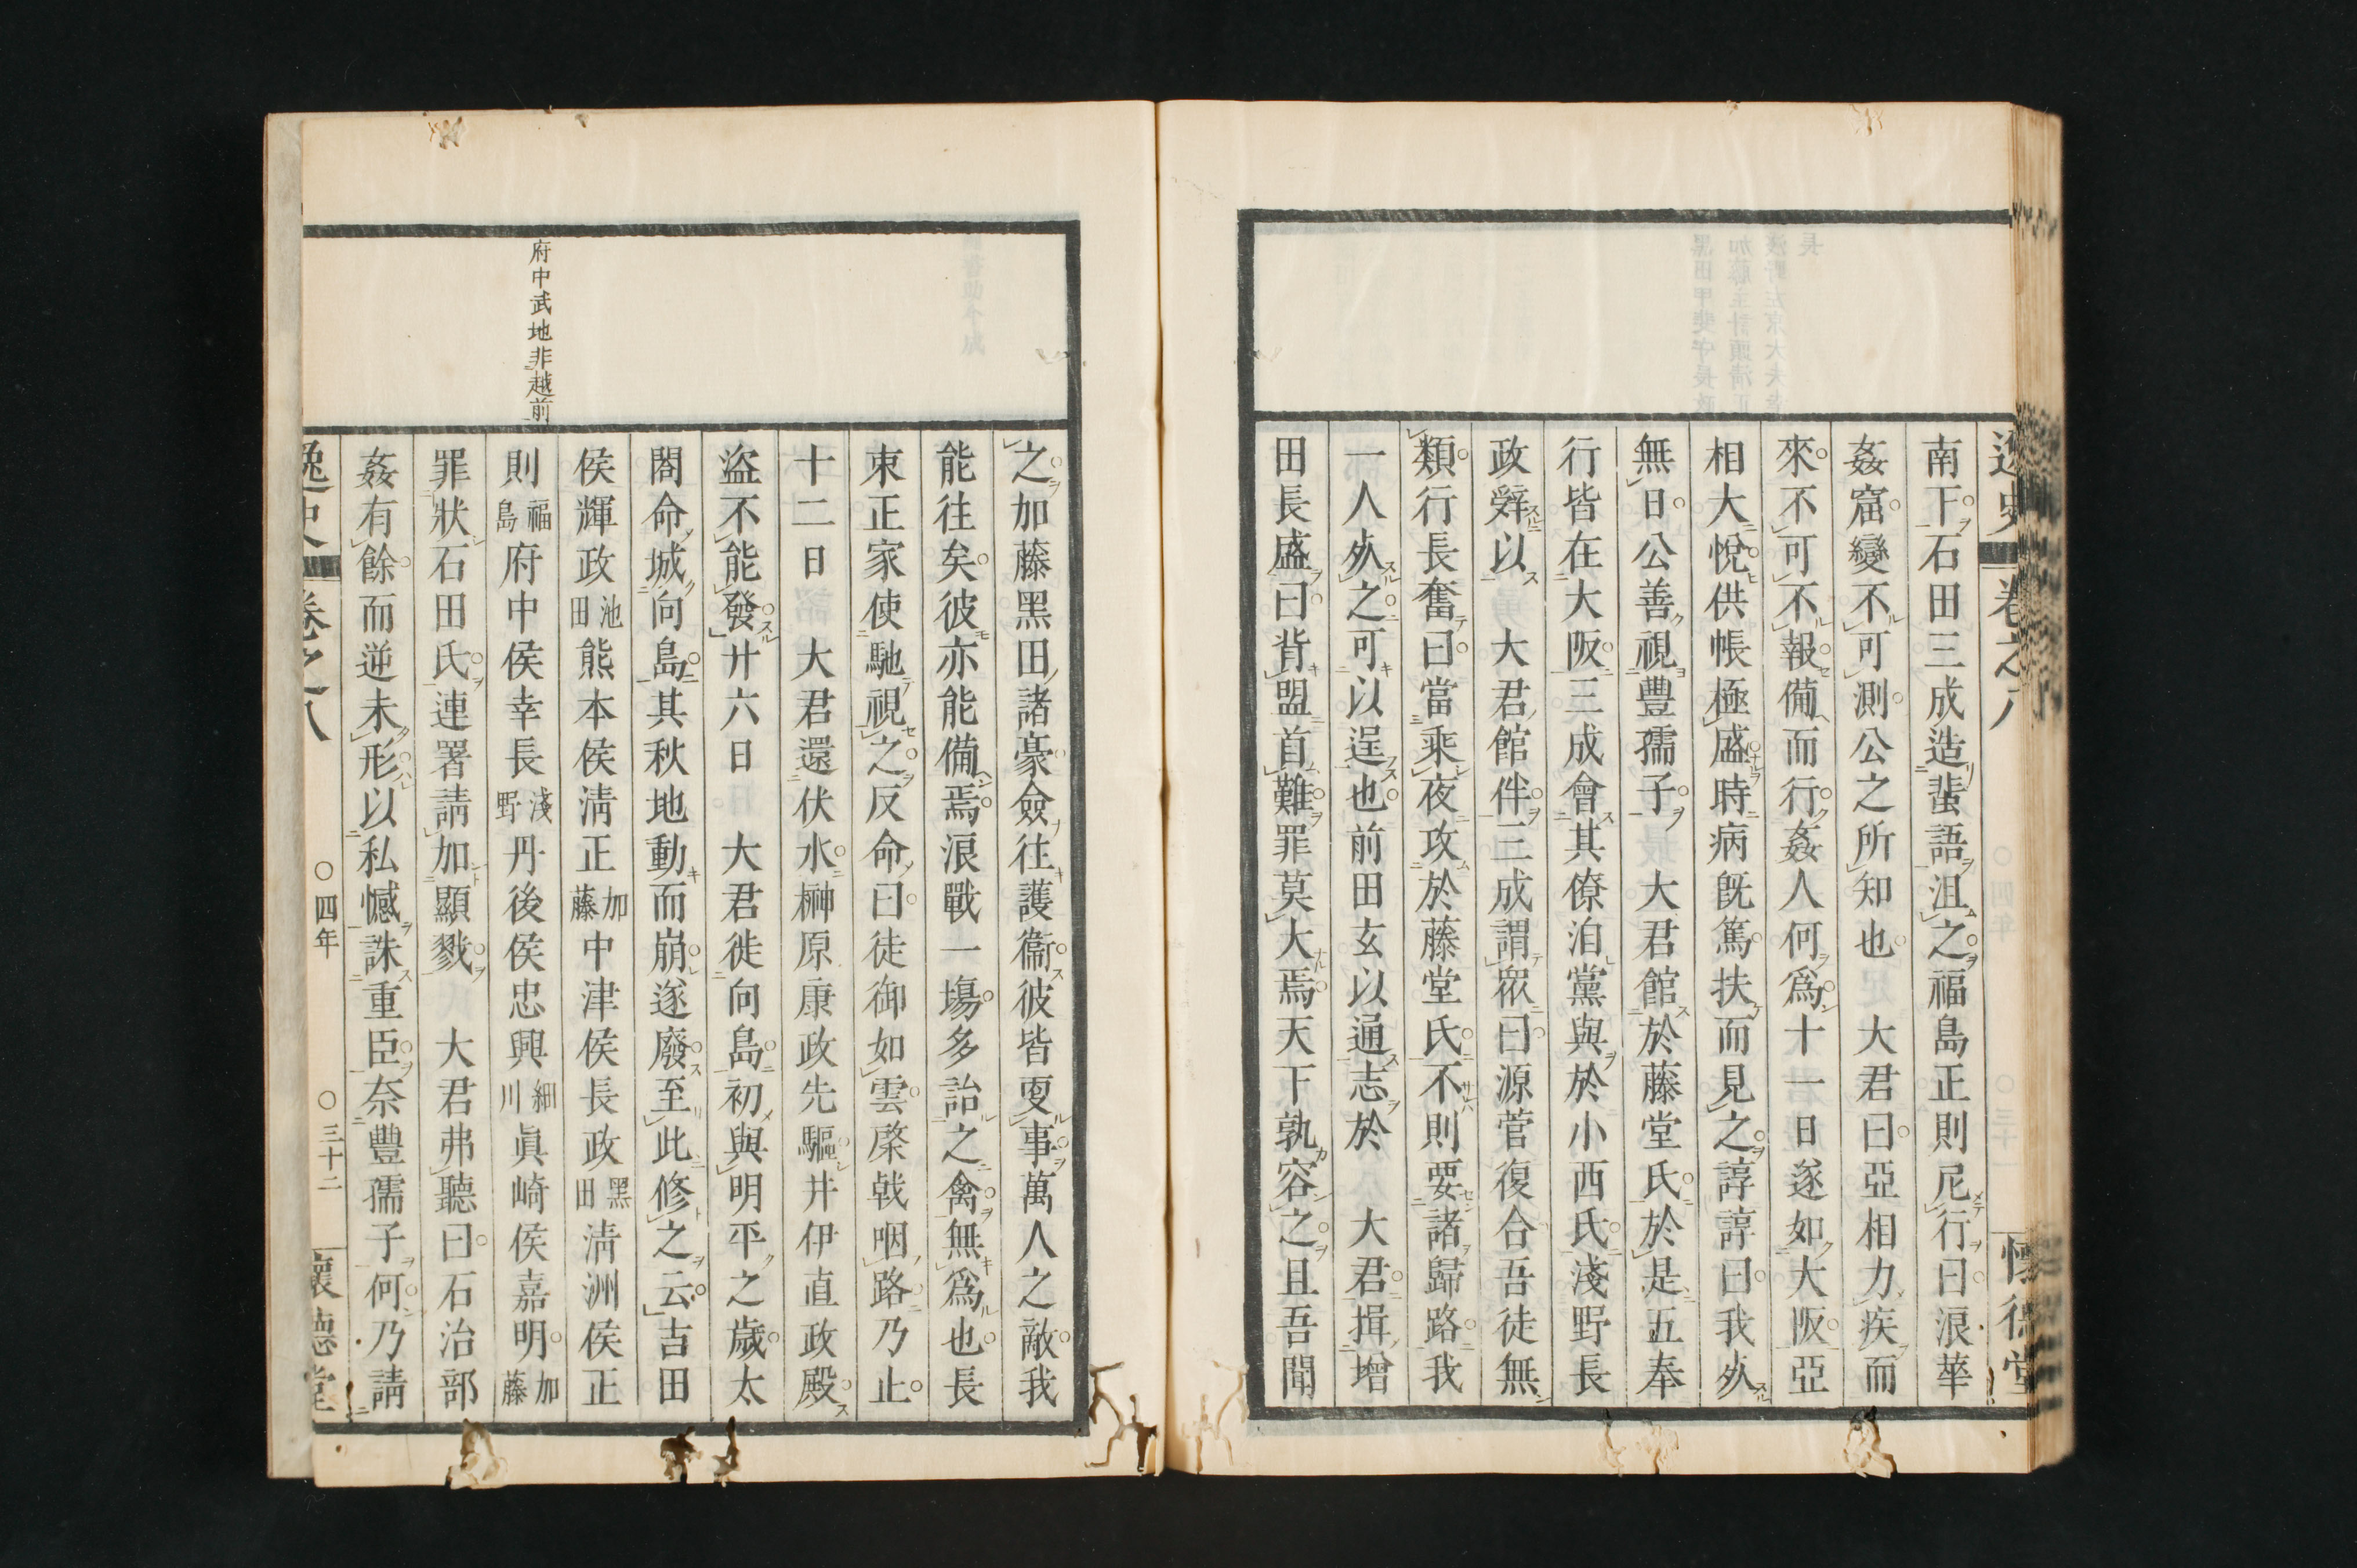 逸史 卷之八 懷德堂
南下石田三成造蜚語沮之福島正則尼行曰浪華
姦窟變不可測公之所知也 大君曰亞相力疾而
來不可不報備而行姦人何爲十一日遂如大阪亞
相大悅供帳極盛時病旣篤扶而見之諄諄曰我死
無日公善視豐孺子 大君館於藤堂氏於是五奉
行皆在大阪三成會其僚洎黨與於小西氏淺野長
政辤以 大君館伴三成謂眾曰源菅復合吾徒無
類行長奮曰當乘夜攻於藤堂氏不則要諸歸路我
一人死之可以逞也前田玄以通志於 大君揖增
田長盛曰背盟首難罪莫大焉天下孰容之且吾聞
之加藤黑田諸豪僉往護衞彼皆更事萬人之敵我
能往矣彼亦能備焉浪戰一塲多詒之禽無爲也長
束正家使馳視之反命曰徒御如雲棨戟咽路乃止
十二日 大君還伏水榊原康政先驅井伊直政殿
盜不能發廿六日 大君徙向島初與明平之歲太
閤命城向島其秋地動而崩遂廢至此修之云吉田
侯輝政池田熊本侯淸正加藤中津侯長政黑田淸洲侯正
則福島府中侯幸長淺野丹後侯忠興細川眞崎侯嘉明加藤
罪狀石田氏連署請加顯戮 大君弗聽曰石治部
姦有餘而逆未形以私憾誅重臣奈豐孺子何乃請
府中武地非越前
逸史 卷之八 ○四年 ○三十二 懷德堂